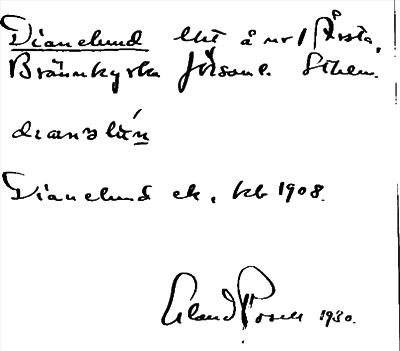 Dianelund lht å nr 1 Årsta,
Brännkyrka församl. Sthlm.
dianəlún
Dianelund ek. kb 1908.
Erland Rosell 1930.